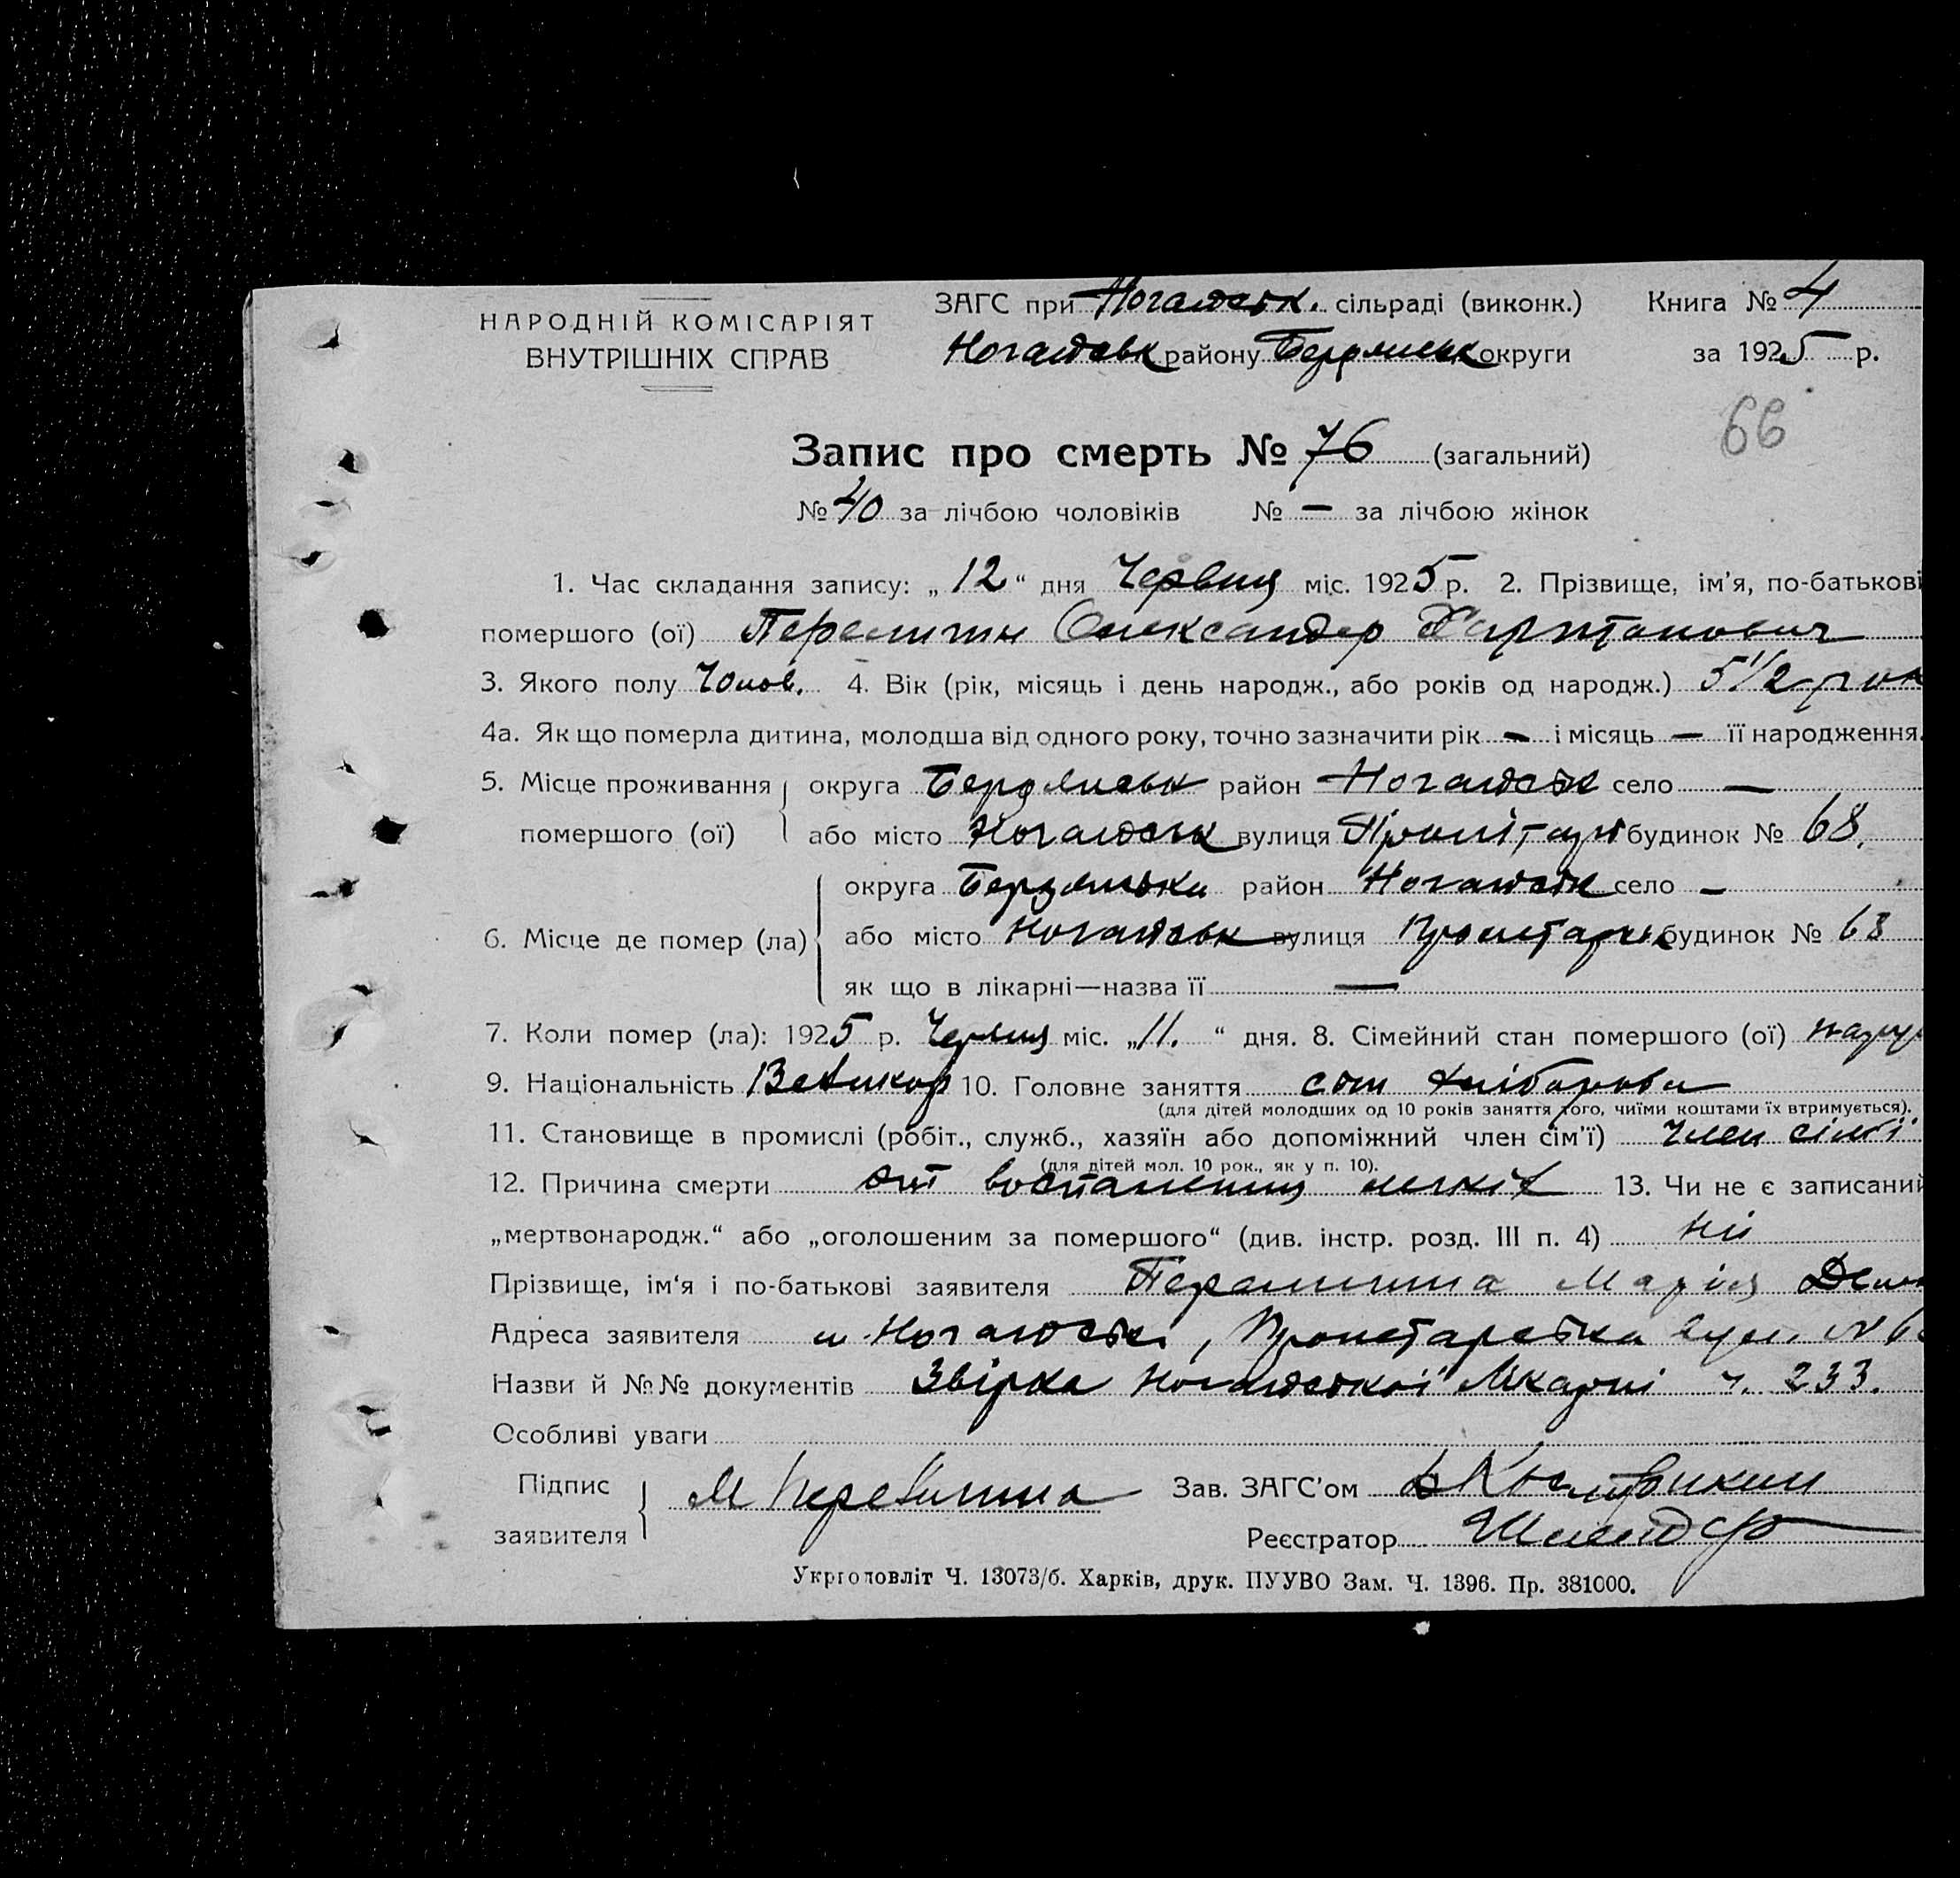 НАРОДНІЙ КОМІСАРІЯТ
ВНУТРІШНІХ СПРАВ
ЗАГС при Ногайськ. сільраді (виконк.) Книга № 4
Ногайськ району Бердянськ округи за 1925 р.
66
Запис про смерть № 76 (загальний)
№ 40 за лічбою чоловіків № — за лічбою жінок
1. Час складання запису: „12“ дня Червня міс. 1925 р. 2. Прізвище, ім'я, по-батькові
помершого (ої) Олександр
3. Якого полу Чолов. 4. Вік (рік, місяць і день народж., або років од народж.) 5 1/2 рок
4а. Як що померла дитина, молодша від одного року, точно зазначити рік — і місяць — її народження.
5. Місце проживання округа Бердянськ район Ногайськ село —
помершого (ої) або місто Ногайськ вулиця будинок № 68.
округа Бердянська район Ногайськ село —
6. Місце де помер (ла) або місто Ногайськ вулиця будинок № 68
як що в лікарні—назва її —
7. Коли помер (ла): 1925 р. Червня міс. „11.“ дня. 8. Сімейний стан помершого (ої)
9. Національність Великор 10. Головне заняття син хлібороба
(для дітей молодших од 10 років заняття того, чиїми коштами їх втримується).
11. Становище в промислі (робіт., служб., хазяїн або допоміжний член сім'ї) Член сімї
(для дітей мол. 10 рок., як у п. 10).
12. Причина смерти от воспаления легких 13. Чи не є записаний
„мертвонародж.“ або „оголошеним за помершого“ (див. інстр. розд. III п. 4) ні
Прізвище, ім'я і по-батькові заявителя Марія
Адреса заявителя м Ногайськ, Пролетарська вул. №
Назви й №№ документів Звірка Ногайської Лікарні ч. 233.
Особливі уваги
Підпис
заявителя М
Зав. ЗАГС'ом
Реєстратор
Укрголовліт Ч. 13073/б. Харків, друк. ПУУВО Зам. Ч. 1396. Пр. 381000.